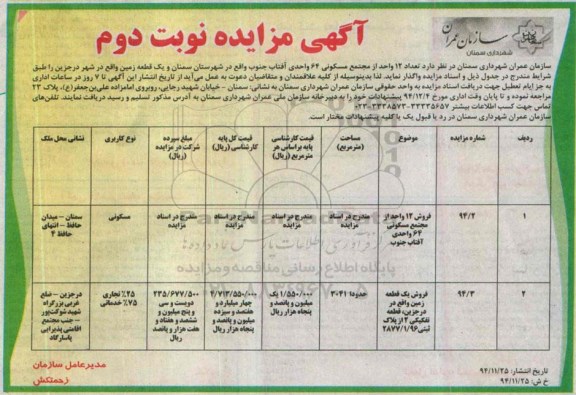 سازمان عمران
شهرداری سمنان
آگهی مزایده نوبت دوم
سازمان عمران شهرداری سمنان در نظر دارد تعداد ۱۲ واحد از مجتمع مسکونی ۶۴ واحدی آفتاب جنوب واقع در شهرستان سمنان و یک قطعه زمین واقع در شهر درجزین را طبق
شرایط مندرج در جدول ذیل و اسناد مزایده واگذار نماید. لذا بدینوسیله از کلیه علاقمندان و متقاضیان دعوت به عمل می‌آید از تاریخ انتشار این آگهی تا ۷ روز در ساعات اداری
به جز ایام تعطیل جهت دریافت اسناد مزایده به واحد حقوقی سازمان عمران شهرداری سمنان به نشانی: سمنان - خیابان شهید رجایی، روبروی امامزاده علی‌بن‌جعفر(ع)، پلاک ۲۳
مراجعه نموده و تا پایان وقت اداری مورخ ۹۴/۱۲/۴ پیشنهادات خود را به دبیرخانه سازمان ملی عمران شهرداری سمنان به آدرس مذکور تسلیم و رسید دریافت نمایند. تلفن‌های
تماس جهت کسب اطلاعات بیشتر ۳۳۳۳۵۶۵۷-۳۳۳۳۸۵۷۳-۰۲۳
سازمان عمران شهرداری سمنان در رد یا قبول یک یا کلیه پیشنهادات مختار است.
ردیف شماره مزایده موضوع مساحت (مترمربع) قیمت کارشناسی پایه براساس هر مترمربع (ریال) قیمت کل پایه کارشناسی (ریال) مبلغ سپرده شرکت در مزایده (ریال) نوع کاربری نشانی محل ملک
۱ ۹۴/۲ فروش ۱۲ واحد از مجتمع مسکونی ۶۴ واحدی آفتاب جنوب مندرج در اسناد مزایده مندرج در اسناد مزایده مندرج در اسناد مزایده مندرج در اسناد مزایده مسکونی سمنان - میدان حافظ - انتهای حافظ ۴
۲ ۹۴/۳ فروش یک قطعه زمین واقع در درجزین، قطعه تفکیکی ۲ از پلاک ثبتی ۲۸۷۷/۱/۹۶ حدودا ۳۰۴۱ ۱/۵۵۰/۰۰۰ یک میلیون و پانصد و پنجاه هزار ریال ۴/۷۱۳/۵۵۰/۰۰۰ چهار میلیارد و هفتصد و سیزده میلیون و پانصد و پنجاه هزار ریال ۲۳۵/۶۷۷/۵۰۰ دویست و سی و پنج میلیون و ششصد و هفتاد و هفت هزار و پانصد ریال ۲۵٪ تجاری ۷۵٪ خدماتی درجزین - ضلع غربی بزرگراه شهید شوکت‌پور - جنب مجتمع اقامتی پذیرایی پاسارگاد
پایگاه اطلاع رسانی مناقصه و مزایده
مدیرعامل سازمان
زحمتکش
تاریخ انتشار: ۹۴/۱۱/۲۵
خ ش: ۹۴/۱۱/۲۵